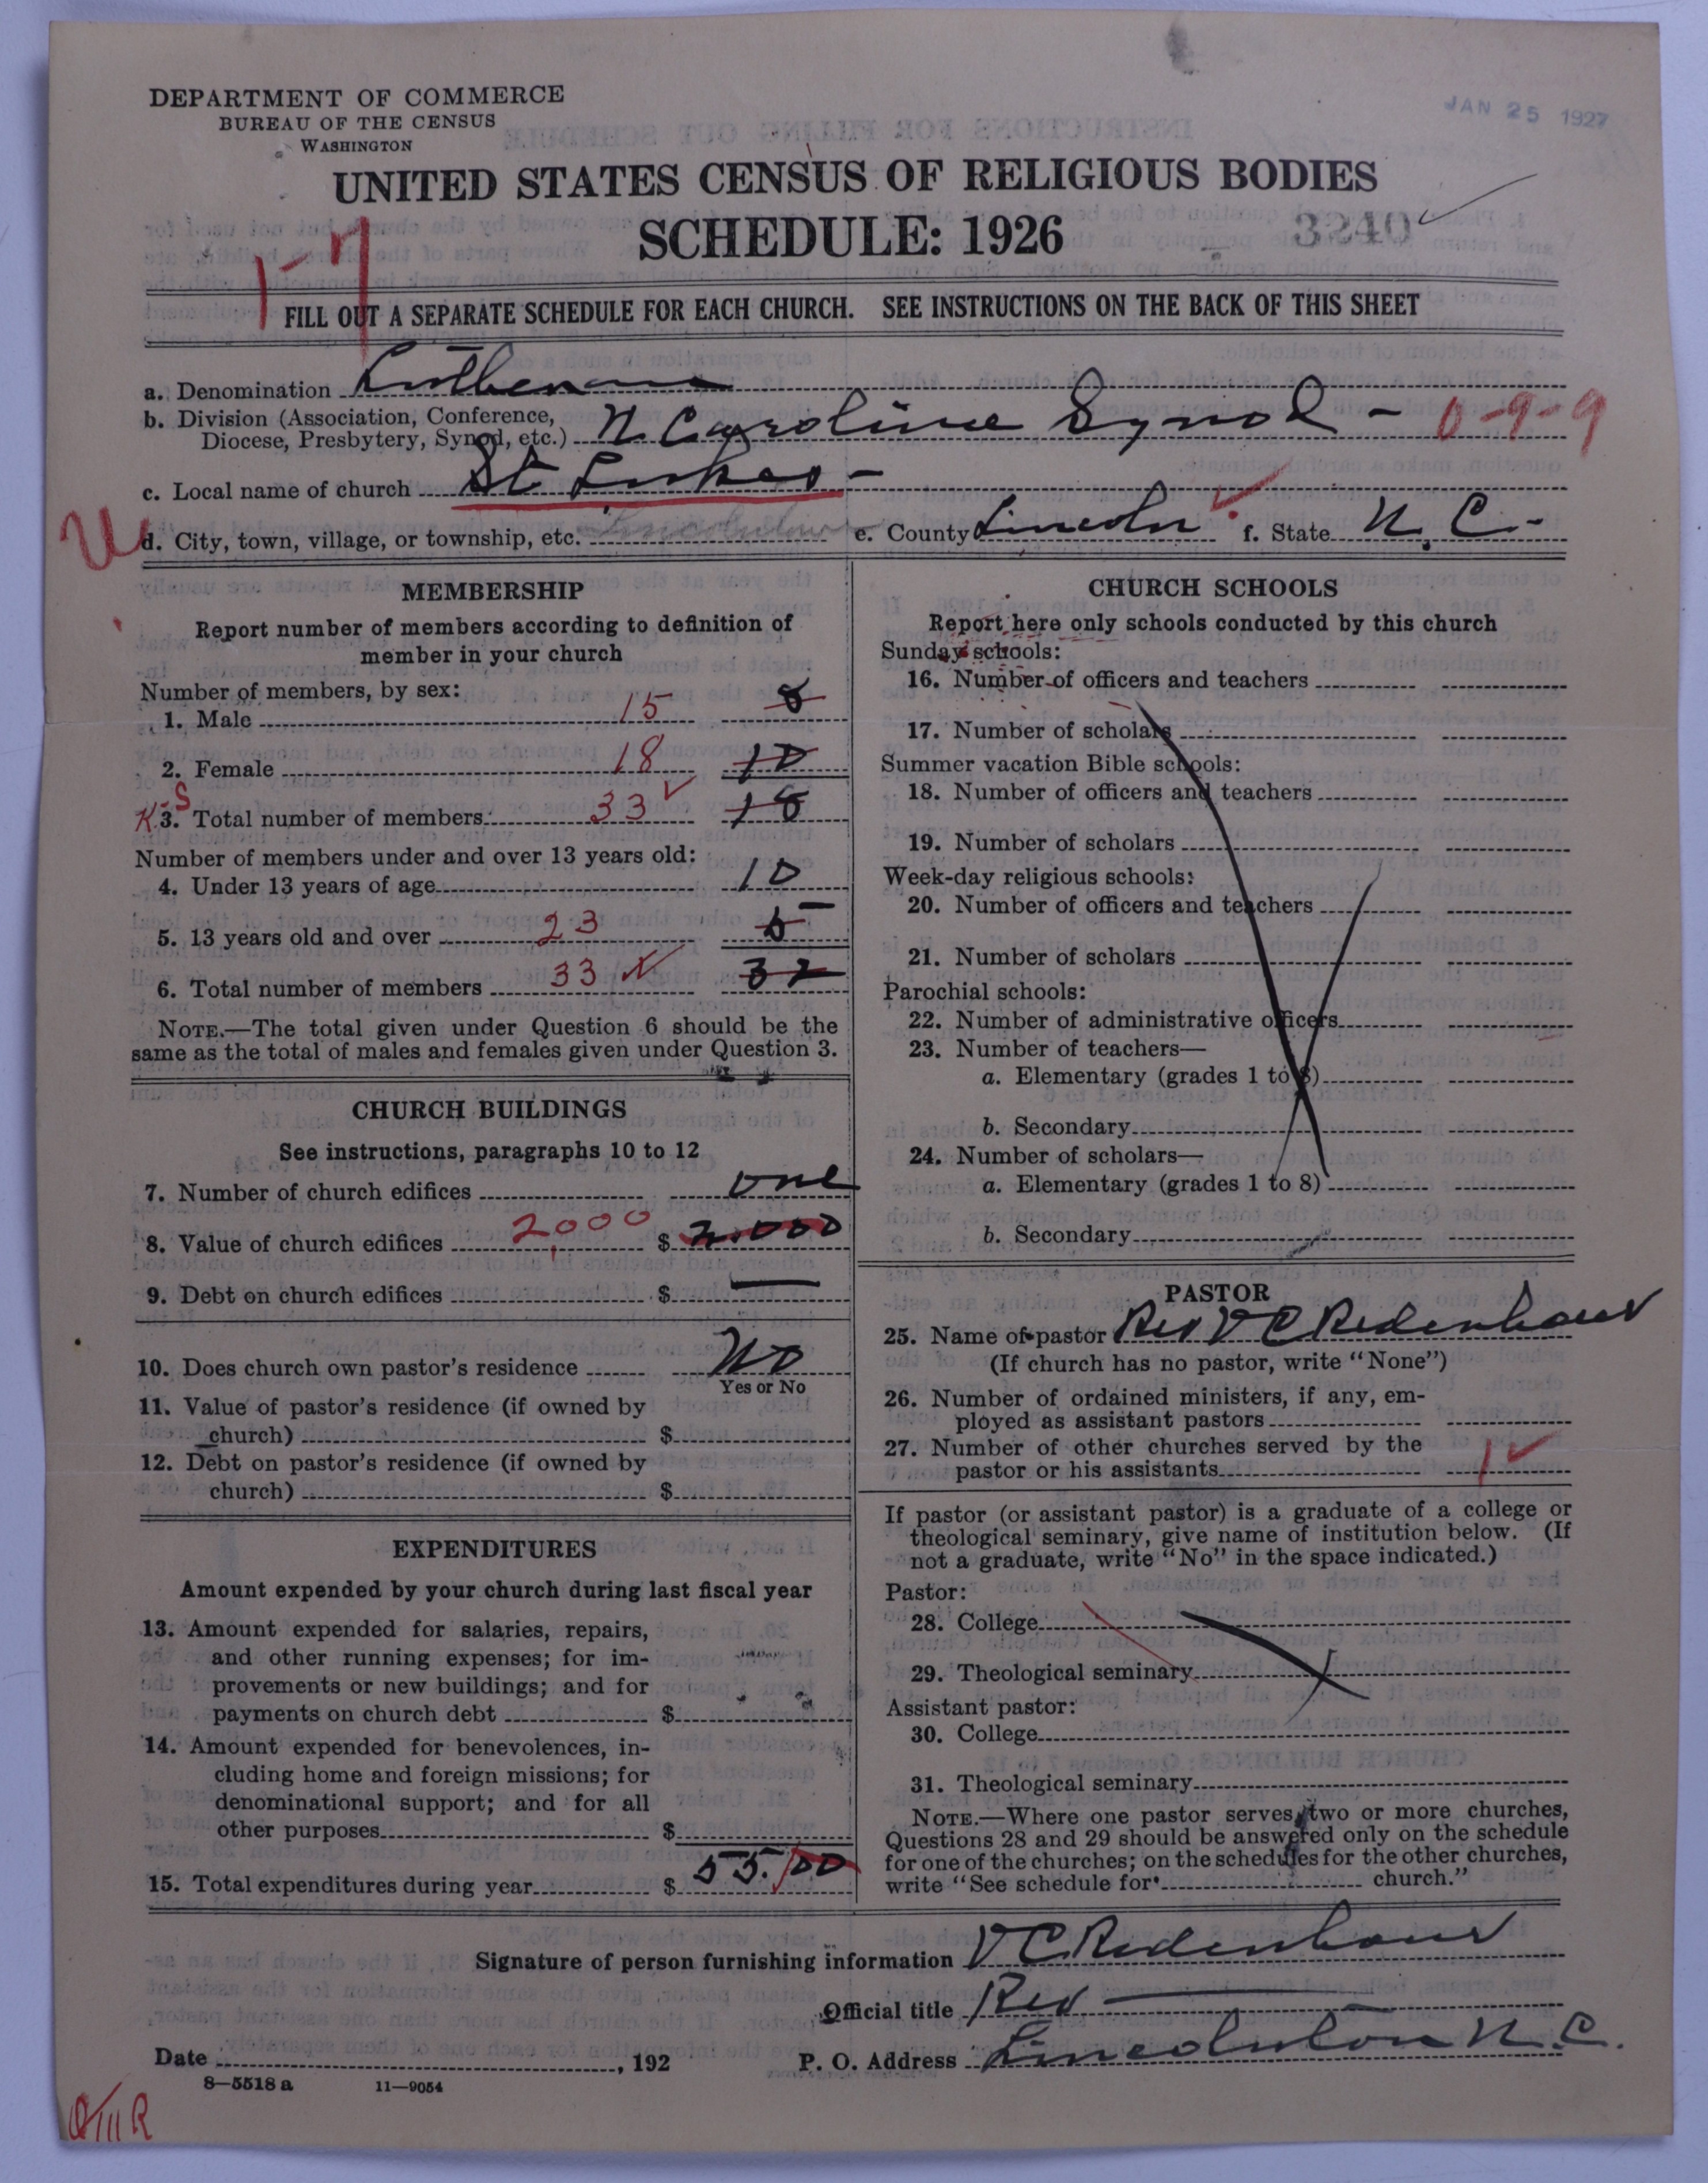 DEPARTMENT OF COMMERCE
BUREAU OF THE CENSUS
WASHINGTON
JAN 25 1927
UNITED STATES CENSUS OF RELIGIOUS BODIES
SCHEDULE: 1926
3240
FILL OUT A SEPARATE SCHEDULE FOR EACH CHURCH. SEE INSTRUCTIONS ON THE BACK OF THIS SHEET
a. Denomination Lutheran
b. Division (Association, Conference,
Diocese, Presbytery, Synod, etc.) N. Carolina Synod - 0-9-9
c. Local name of church St Lukes -
d. City, town, village, or township, etc. Lincolnton e. County Lincoln f. State N. C.
MEMBERSHIP
Report number of members according to definition of
member in your church
Number of members, by sex:
1. Male 15 8
2. Female 18 10
3. Total number of members 33 18
Number of members under and over 13 years old:
4. Under 13 years of age 10
5. 13 years old and over 23
6. Total number of members 33 32
NOTE.—The total given under Question 6 should be the
same as the total of males and females given under Question 3.
CHURCH BUILDINGS
See instructions, paragraphs 10 to 12
7. Number of church edifices one
8. Value of church edifices 2000 $ 2.000
9. Debt on church edifices $ —
10. Does church own pastor's residence No
Yes or No
11. Value of pastor's residence (if owned by
church) $
12. Debt on pastor's residence (if owned by
church) $
EXPENDITURES
Amount expended by your church during last fiscal year
13. Amount expended for salaries, repairs,
and other running expenses; for im-
provements or new buildings; and for
payments on church debt $
14. Amount expended for benevolences, in-
cluding home and foreign missions; for
denominational support; and for all
other purposes $
15. Total expenditures during year $ 55.00
CHURCH SCHOOLS
Report here only schools conducted by this church
Sunday schools:
16. Number of officers and teachers
17. Number of scholars
Summer vacation Bible schools:
18. Number of officers and teachers
19. Number of scholars
Week-day religious schools:
20. Number of officers and teachers
21. Number of scholars
Parochial schools:
22. Number of administrative officers
23. Number of teachers—
a. Elementary (grades 1 to 8)
b. Secondary
24. Number of scholars—
a. Elementary (grades 1 to 8)
b. Secondary
PASTOR
25. Name of pastor Rev V C Ridenhour
(If church has no pastor, write "None")
26. Number of ordained ministers, if any, em-
ployed as assistant pastors
27. Number of other churches served by the
pastor or his assistants 1
If pastor (or assistant pastor) is a graduate of a college or
theological seminary, give name of institution below. (If
not a graduate, write "No" in the space indicated.)
Pastor:
28. College
29. Theological seminary
Assistant pastor:
30. College
31. Theological seminary
NOTE.—Where one pastor serves two or more churches,
Questions 28 and 29 should be answered only on the schedule
for one of the churches; on the schedules for the other churches,
write "See schedule for church."
Signature of person furnishing information V C Ridenhour
Official title Rev
Date , 192 P. O. Address Lincolnton N. C.
8—5518 a 11—9054